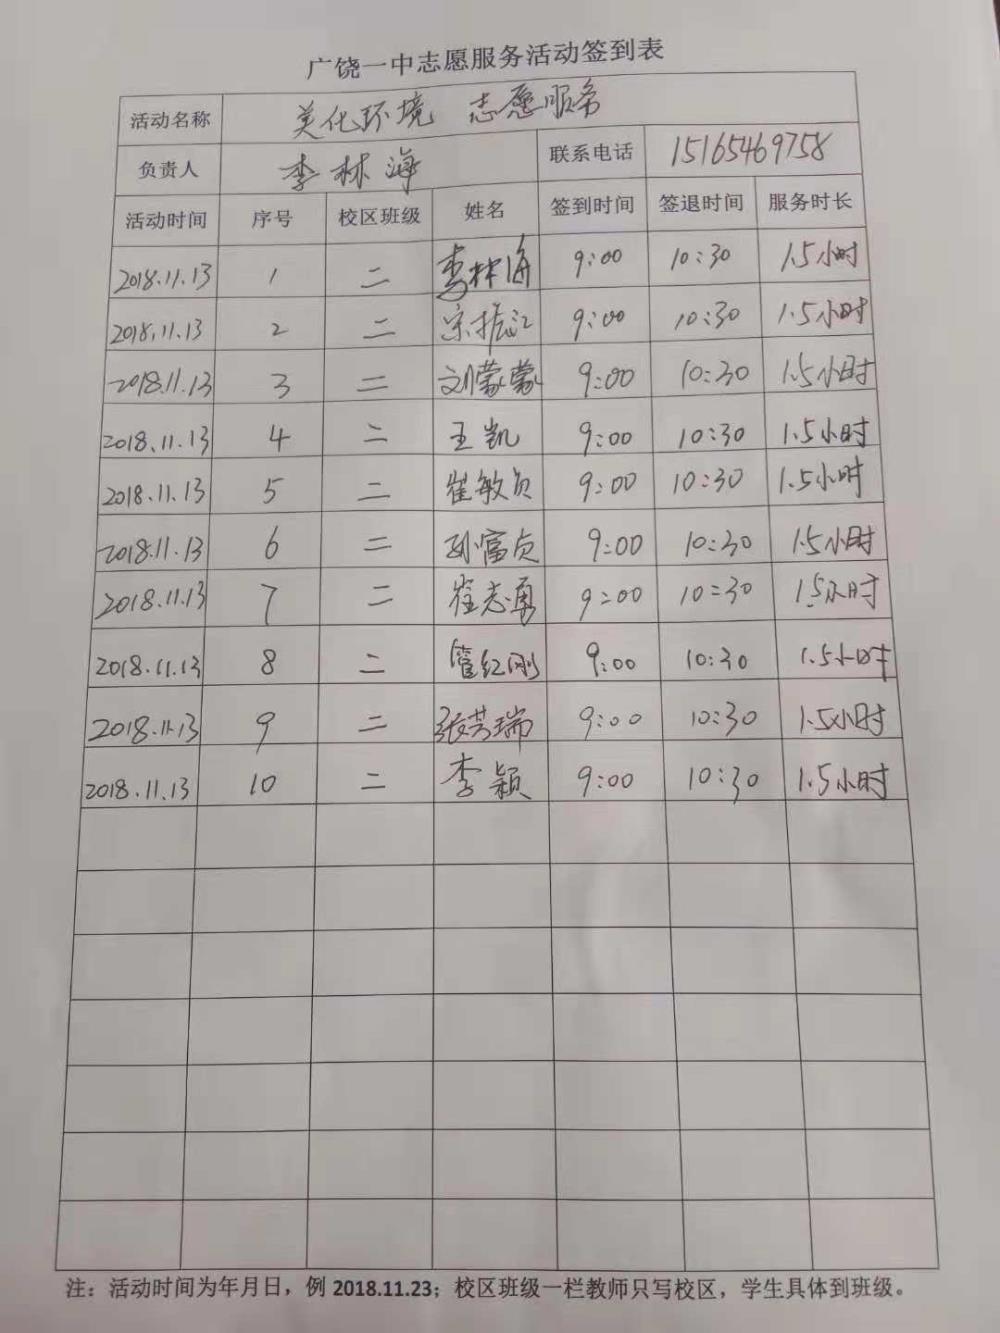 广饶一中志愿服务活动签到表
活动名称 美化环境 志愿服务
负责人 李林海 联系电话 15165469758
活动时间 序号 校区班级 姓名 签到时间 签退时间 服务时长
2018.11.13 1 二 李林海 9:00 10:30 1.5小时
2018.11.13 2 二 宗振江 9:00 10:30 1.5小时
2018.11.13 3 二 刘蒙蒙 9:00 10:30 1.5小时
2018.11.13 4 二 王凯 9:00 10:30 1.5小时
2018.11.13 5 二 崔敏贞 9:00 10:30 1.5小时
2018.11.13 6 二 孙富贞 9:00 10:30 1.5小时
2018.11.13 7 二 崔志勇 9:00 10:30 1.5小时
2018.11.13 8 二 管红刚 9:00 10:30 1.5小时
2018.11.13 9 二 张芳瑞 9:00 10:30 1.5小时
2018.11.13 10 二 李颖 9:00 10:30 1.5小时
注：活动时间为年月日，例 2018.11.23；校区班级一栏教师只写校区，学生具体到班级。